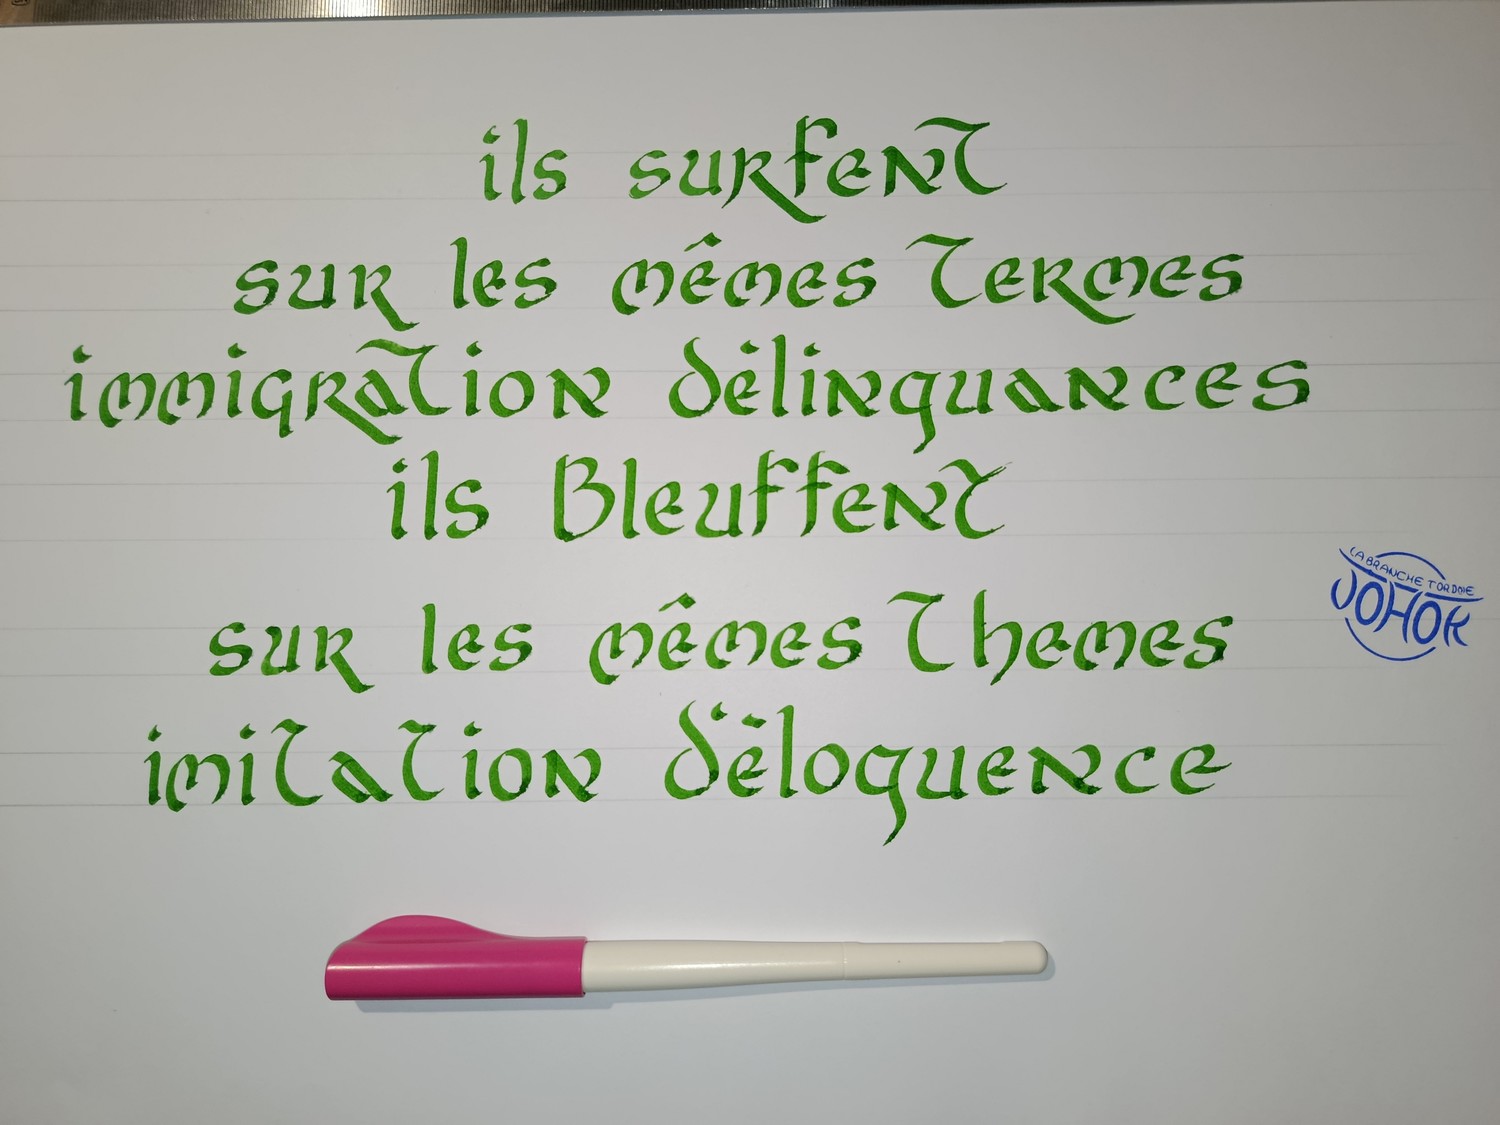 ils surfent
sur les mêmes termes
immigration délinquances
ils Bleuffent
sur les mêmes themes
imitation d'éloquence
LA BRANCHE TORDOIE
JOHOK